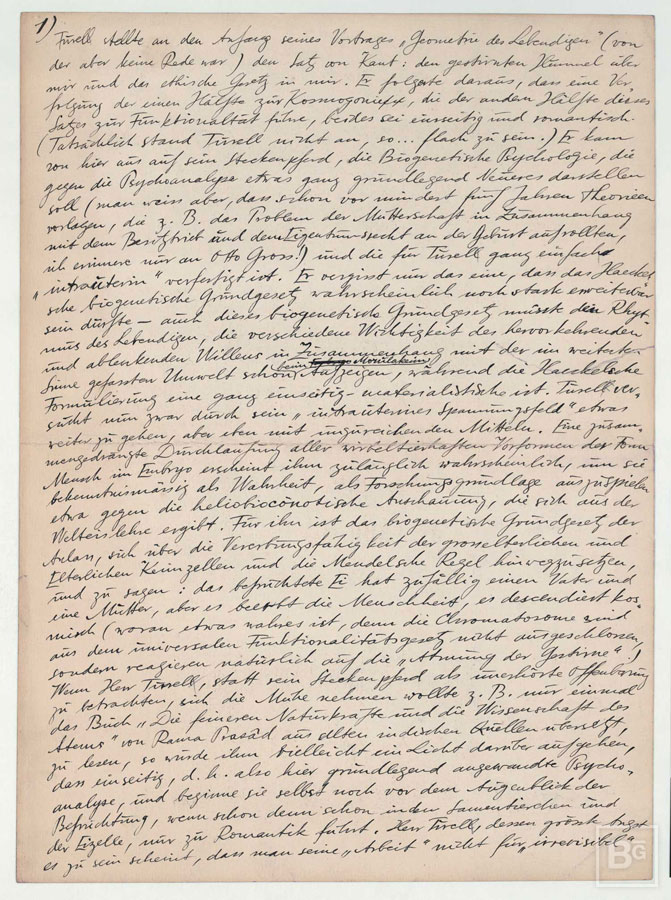 1)
Tirell stellte an den Anfang seines Vortrages „Geometrie des Lebendigen" (von
der aber keine Rede war) den Satz von Kant: den gestirnten Himmel über
mir und das ethische Gesetz in mir. Er folgerte daraus, dass eine Ver-
folgung der einen Hälfte zur Kosmogonie, die der andern Hälfte dieses
Satzes zur Funktionalität führe, beides sei einseitig und romantisch.
(Tatsächlich stand Tirell nicht an, so... flach zu sein.) Er kam
von hier aus auf sein Steckenpferd, die Biogenetische Psychologie, die
gegen die Psychoanalyse etwas ganz grundlegend Neueres darstellen
soll (man weiss aber, dass schon vor mindest fünf Jahren Theorieen
vorlagen, die z. B. das Problem der Mutterschaft in Zusammenhang
mit dem Besitztrieb und dem Eigentumsrecht an der Geburt aufrollten,
ich erinnere nur an Otto Gross!) und die für Tirell ganz einfach
„intrauterin" verfertigt ist. Er vergisst nur das eine, dass das Haeckel-
sche biogenetische Grundgesetz wahrscheinlich noch stark erweiterbar
sein dürfte — auch dieses biogenetische Grundgesetz müsste den Rhyt-
mus des Lebendigen, die verschiedene Wichtigkeit des hervorkehrenden
und ablenkenden Willens in Zusammenhang mit der im weitesten
Sinne gefassten Umwelt schon (beim Morulakeim) aufzeigen, während die Haeckelsche
Formulierung eine ganz einseitig-materialistische ist. Tirell ver-
sucht nun zwar durch sein „intrauterines Spannungsfeld" etwas
weiter zu gehen, aber eben mit unzureichenden Mitteln. Eine zusam-
mengedrängte Durchlaufung aller wirbeltierhaften Vorformen der Form
Mensch im Embryo erscheint ihm zulänglich wahrscheinlich, um sie
bekenntnismässig als Wahrheit, als Forschungsgrundlage auszuspielen
etwa gegen die heliobiocönotische Anschauung, die sich aus der
Welteislehre ergibt. Für ihn ist das biogenetische Grundgesetz der
Anlass, sich über die Vererbungsfähigkeit der grosselterlichen und
Elterlichen Keimzellen und die Mendelsche Regel hinwegzusetzen,
und zu sagen: das befruchtete Ei hat zufällig einen Vater und
eine Mutter, aber es beerbt die Menschheit, es descendiert kos-
misch (woran etwas wahres ist, denn die Chromatosome sind
aus dem universalen Funktionalitätsgesetz nicht ausgeschlossen,
sondern reagieren natürlich auf die „Atmung der Gestirne")!
Wenn Herr Tirell, statt sein Steckenpferd als unerhörte Offenbarung
zu betrachten, sich die Mühe nehmen wollte z. B. nur einmal
das Buch „Die feineren Naturkräfte und die Wissenschaft des
Atems" von Rama Prasâd aus alten indischen Quellen übersetzt,
zu lesen, so würde ihm vielleicht ein Licht darüber aufgehen,
dass einseitig, d. h. also hier grundlegend angewandte Psycho-
analyse, und beginne sie selbst noch vor dem Augenblick der
Befruchtung, wenn schon denn schon in den Samentierchen und
der Eizelle, nur zu Romantik führt. Herr Tirell, dessen grösste Angst
es zu sein scheint, dass man seine „Arbeit" nicht für „irrevisibel"
BG